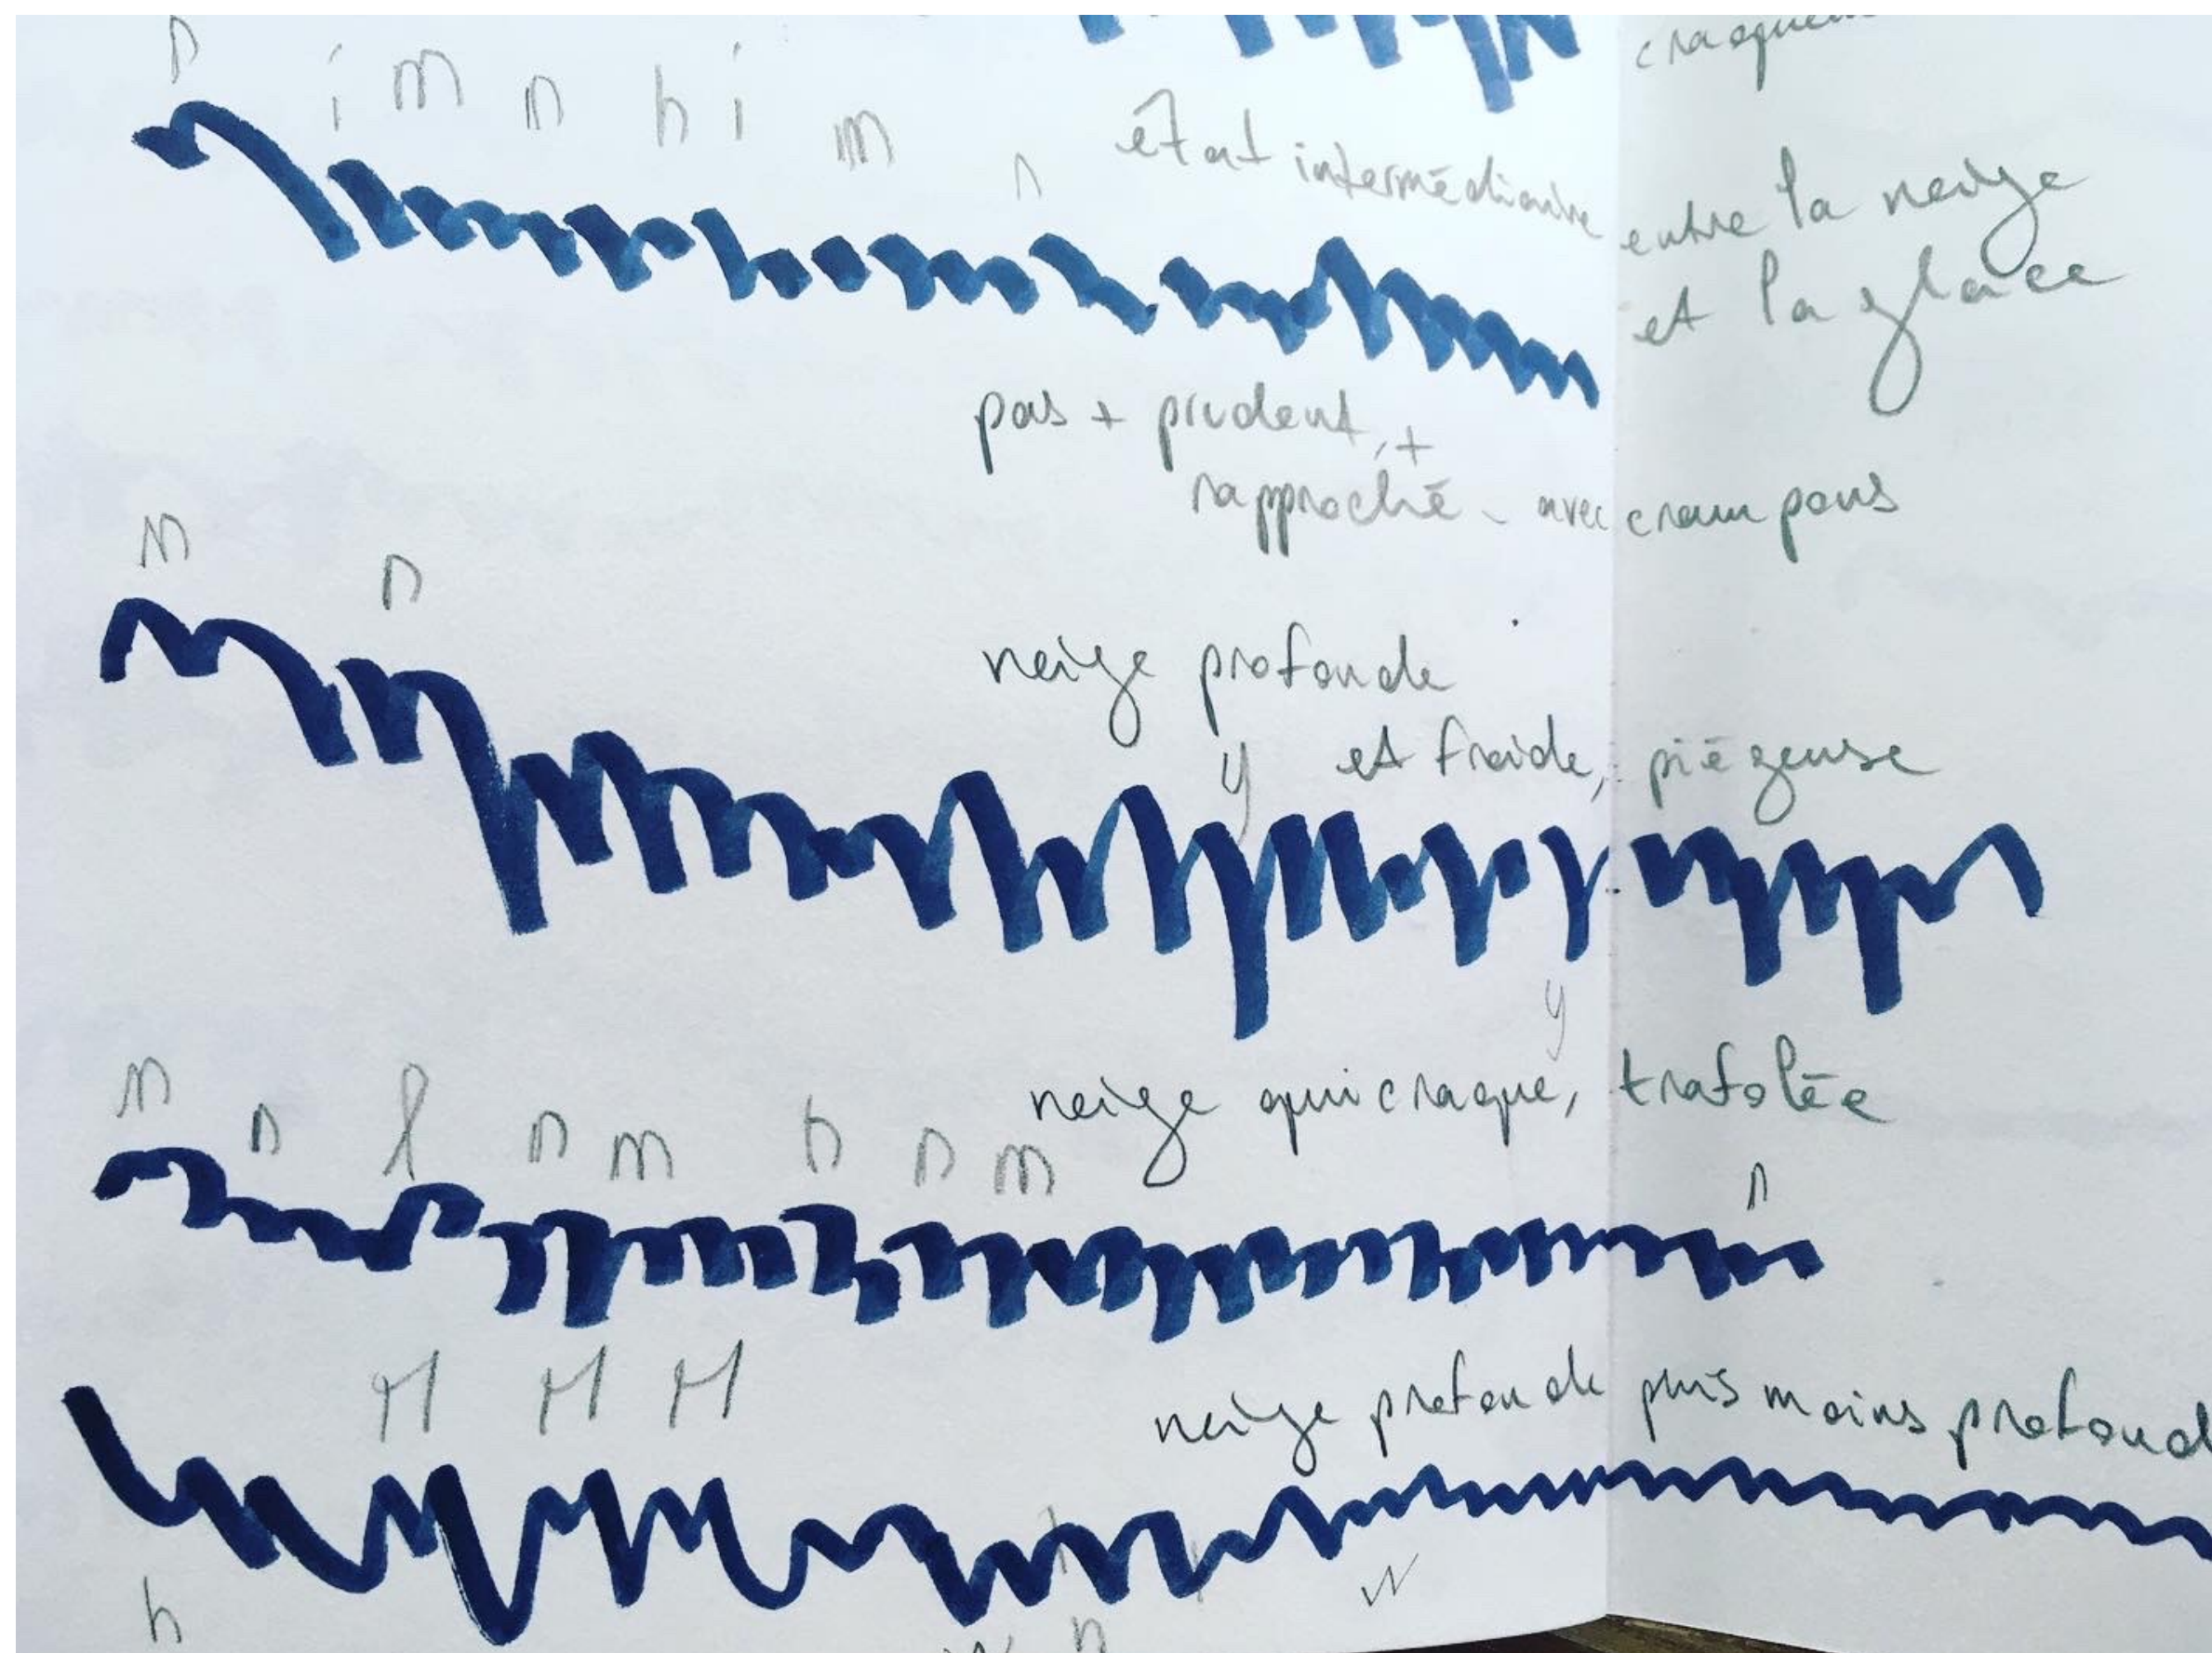 n i m n h i m n
état intermédiaire entre la neige
et la glace
pas + prudent, +
rapproché - avec crampons
m n
neige profonde
et froide, piégeuse
y
y
neige qui craque, trafolée
n n l n m h n m
n
M M M
neige profonde puis moins profond
h
w
n